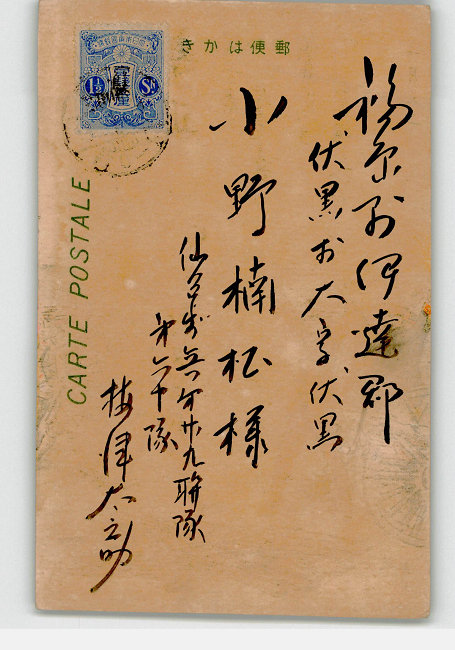 郵便はかき
福島県伊達郡
伏黒村大字伏黒
小野楠松様
仙台歩兵第廿九聯隊
第六中隊
梅津太之助
CARTE POSTALE
1½ Sn